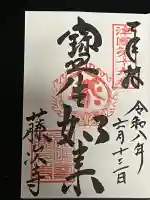 奉拝
令和八年
六月十三日
寶生如来
藤次寺